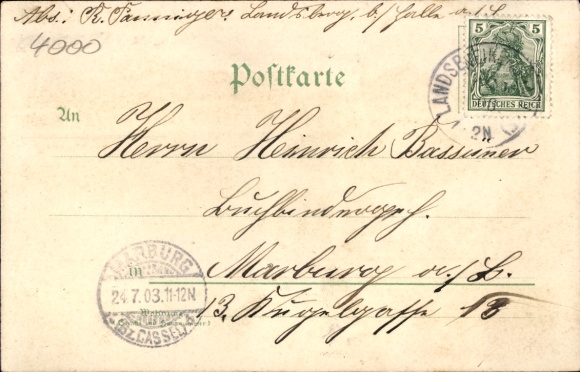 Abs: K. Tanninger, Landsberg b/Halle a. S.
4000
5 5
DEUTSCHES REICH
LANDSBERG
2N
Postkarte
An
Herrn Heinrich Bassuner
Buchbindergesch.
in Marburg a./L.
13. Kugelgasse 13
MARBURG
24.7.03.11-12N
(BZ. CASSEL)
Wohnung